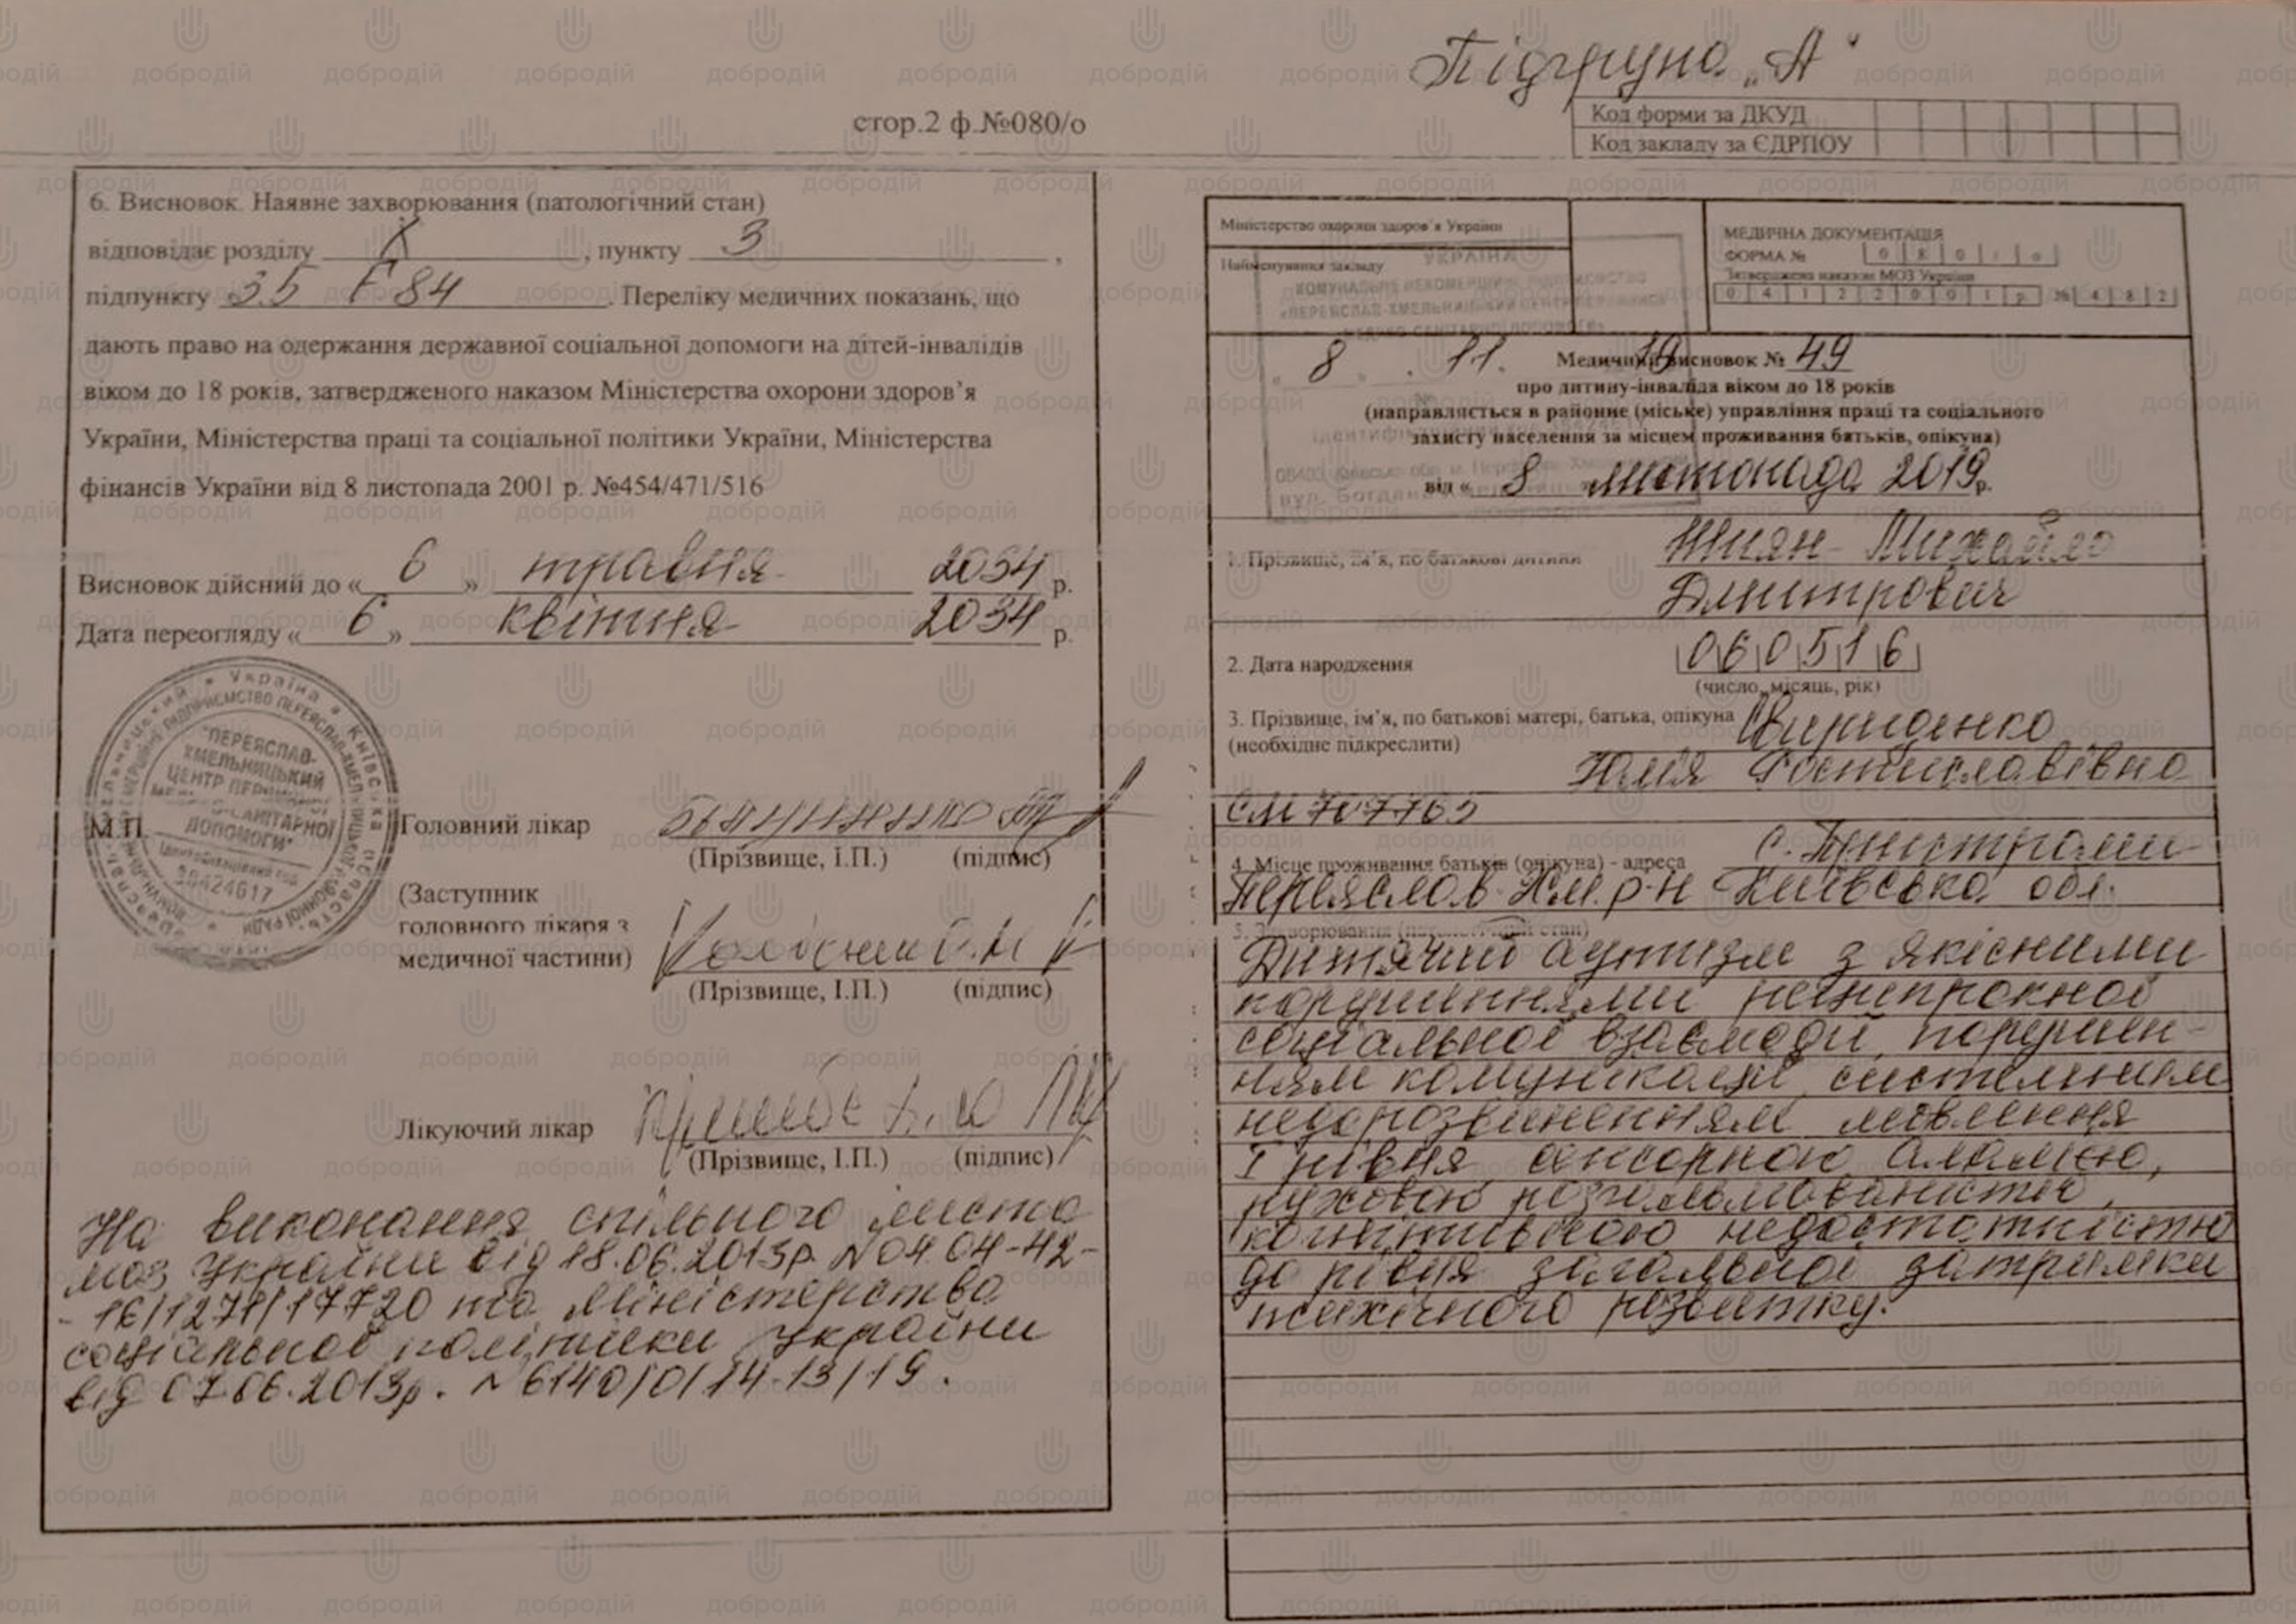 Підгрупа „А"
стор.2 ф.№080/о
Код форми за ДКУД
Код закладу за ЄДРПОУ
6. Висновок. Наявне захворювання (патологічний стан)
відповідає розділу X, пункту 3,
підпункту 3.5 F 84. Переліку медичних показань, що
дають право на одержання державної соціальної допомоги на дітей-інвалідів
віком до 18 років, затвердженого наказом Міністерства охорони здоров’я
України, Міністерства праці та соціальної політики України, Міністерства
фінансів України від 8 листопада 2001 р. №454/471/516
Висновок дійсний до « 6 » травня 2034 р.
Дата переогляду « 6 » квітня 2034 р.
Україна
Київська область
"ПЕРЕЯСЛАВ-
ХМЕЛЬНИЦЬКИЙ
ЦЕНТР
САНІТАРНОЇ
ДОПОМОГИ"
38424617
М.П.
Головний лікар
(Прізвище, І.П.) (підпис)
(Заступник
головного лікаря з
медичної частини)
(Прізвище, І.П.) (підпис)
Лікуючий лікар
(Прізвище, І.П.) (підпис)
На виконання спільного листа
моз України від 18.06.2013р. №04.04-42-
-16/1271/17720 та Міністерства
соціальної політики України
від 07.06.2013р. №6140/0/14-13/19.
Міністерство охорони здоров’я України
Найменування закладу
МЕДИЧНА ДОКУМЕНТАЦІЯ
ФОРМА № 0 8 0 / о
Затверджена наказом МОЗ України
0 4 1 2 2 0 0 1 р № 4 8 2
УКРАЇНА
КОМУНАЛЬНЕ НЕКОМЕРЦІЙНЕ ПІДПРИЄМСТВО
«ПЕРЕЯСЛАВ-ХМЕЛЬНИЦЬКИЙ ЦЕНТР ПЕРВИННОЇ
МЕДИКО-САНІТАРНОЇ ДОПОМОГИ»
8 . 11. 19
Медичний висновок № 49
про дитину-інваліда віком до 18 років
(направляється в районне (міське) управління праці та соціального
захисту населення за місцем проживання батьків, опікуна)
від « 8 » листопада 2019 р.
1. Прізвище, ім’я, по батькові дитини Шиян Михайло
Дмитрович
2. Дата народження 0 6 0 5 1 6
(число, місяць, рік)
3. Прізвище, ім’я, по батькові матері, батька, опікуна Свириденко
(необхідне підкреслити)
Юлія Ростиславівна
СМ 707765
4. Місце проживання батьків (опікуна) - адреса с. Пристроми
Переяслав-Хм. р-н Київська обл.
5. Захворювання (патологічний стан)
Дитячий аутизм з якісними
порушеннями реципрокної
соціальної взаємодії, порушен
ням комунікації, системним
недорозвиненням мовлення
I рівня сенсорною алалією,
руховою розгальмованістю,
когнітивною недостатністю
до рівня загальної затримки
психічного розвитку.
добродій